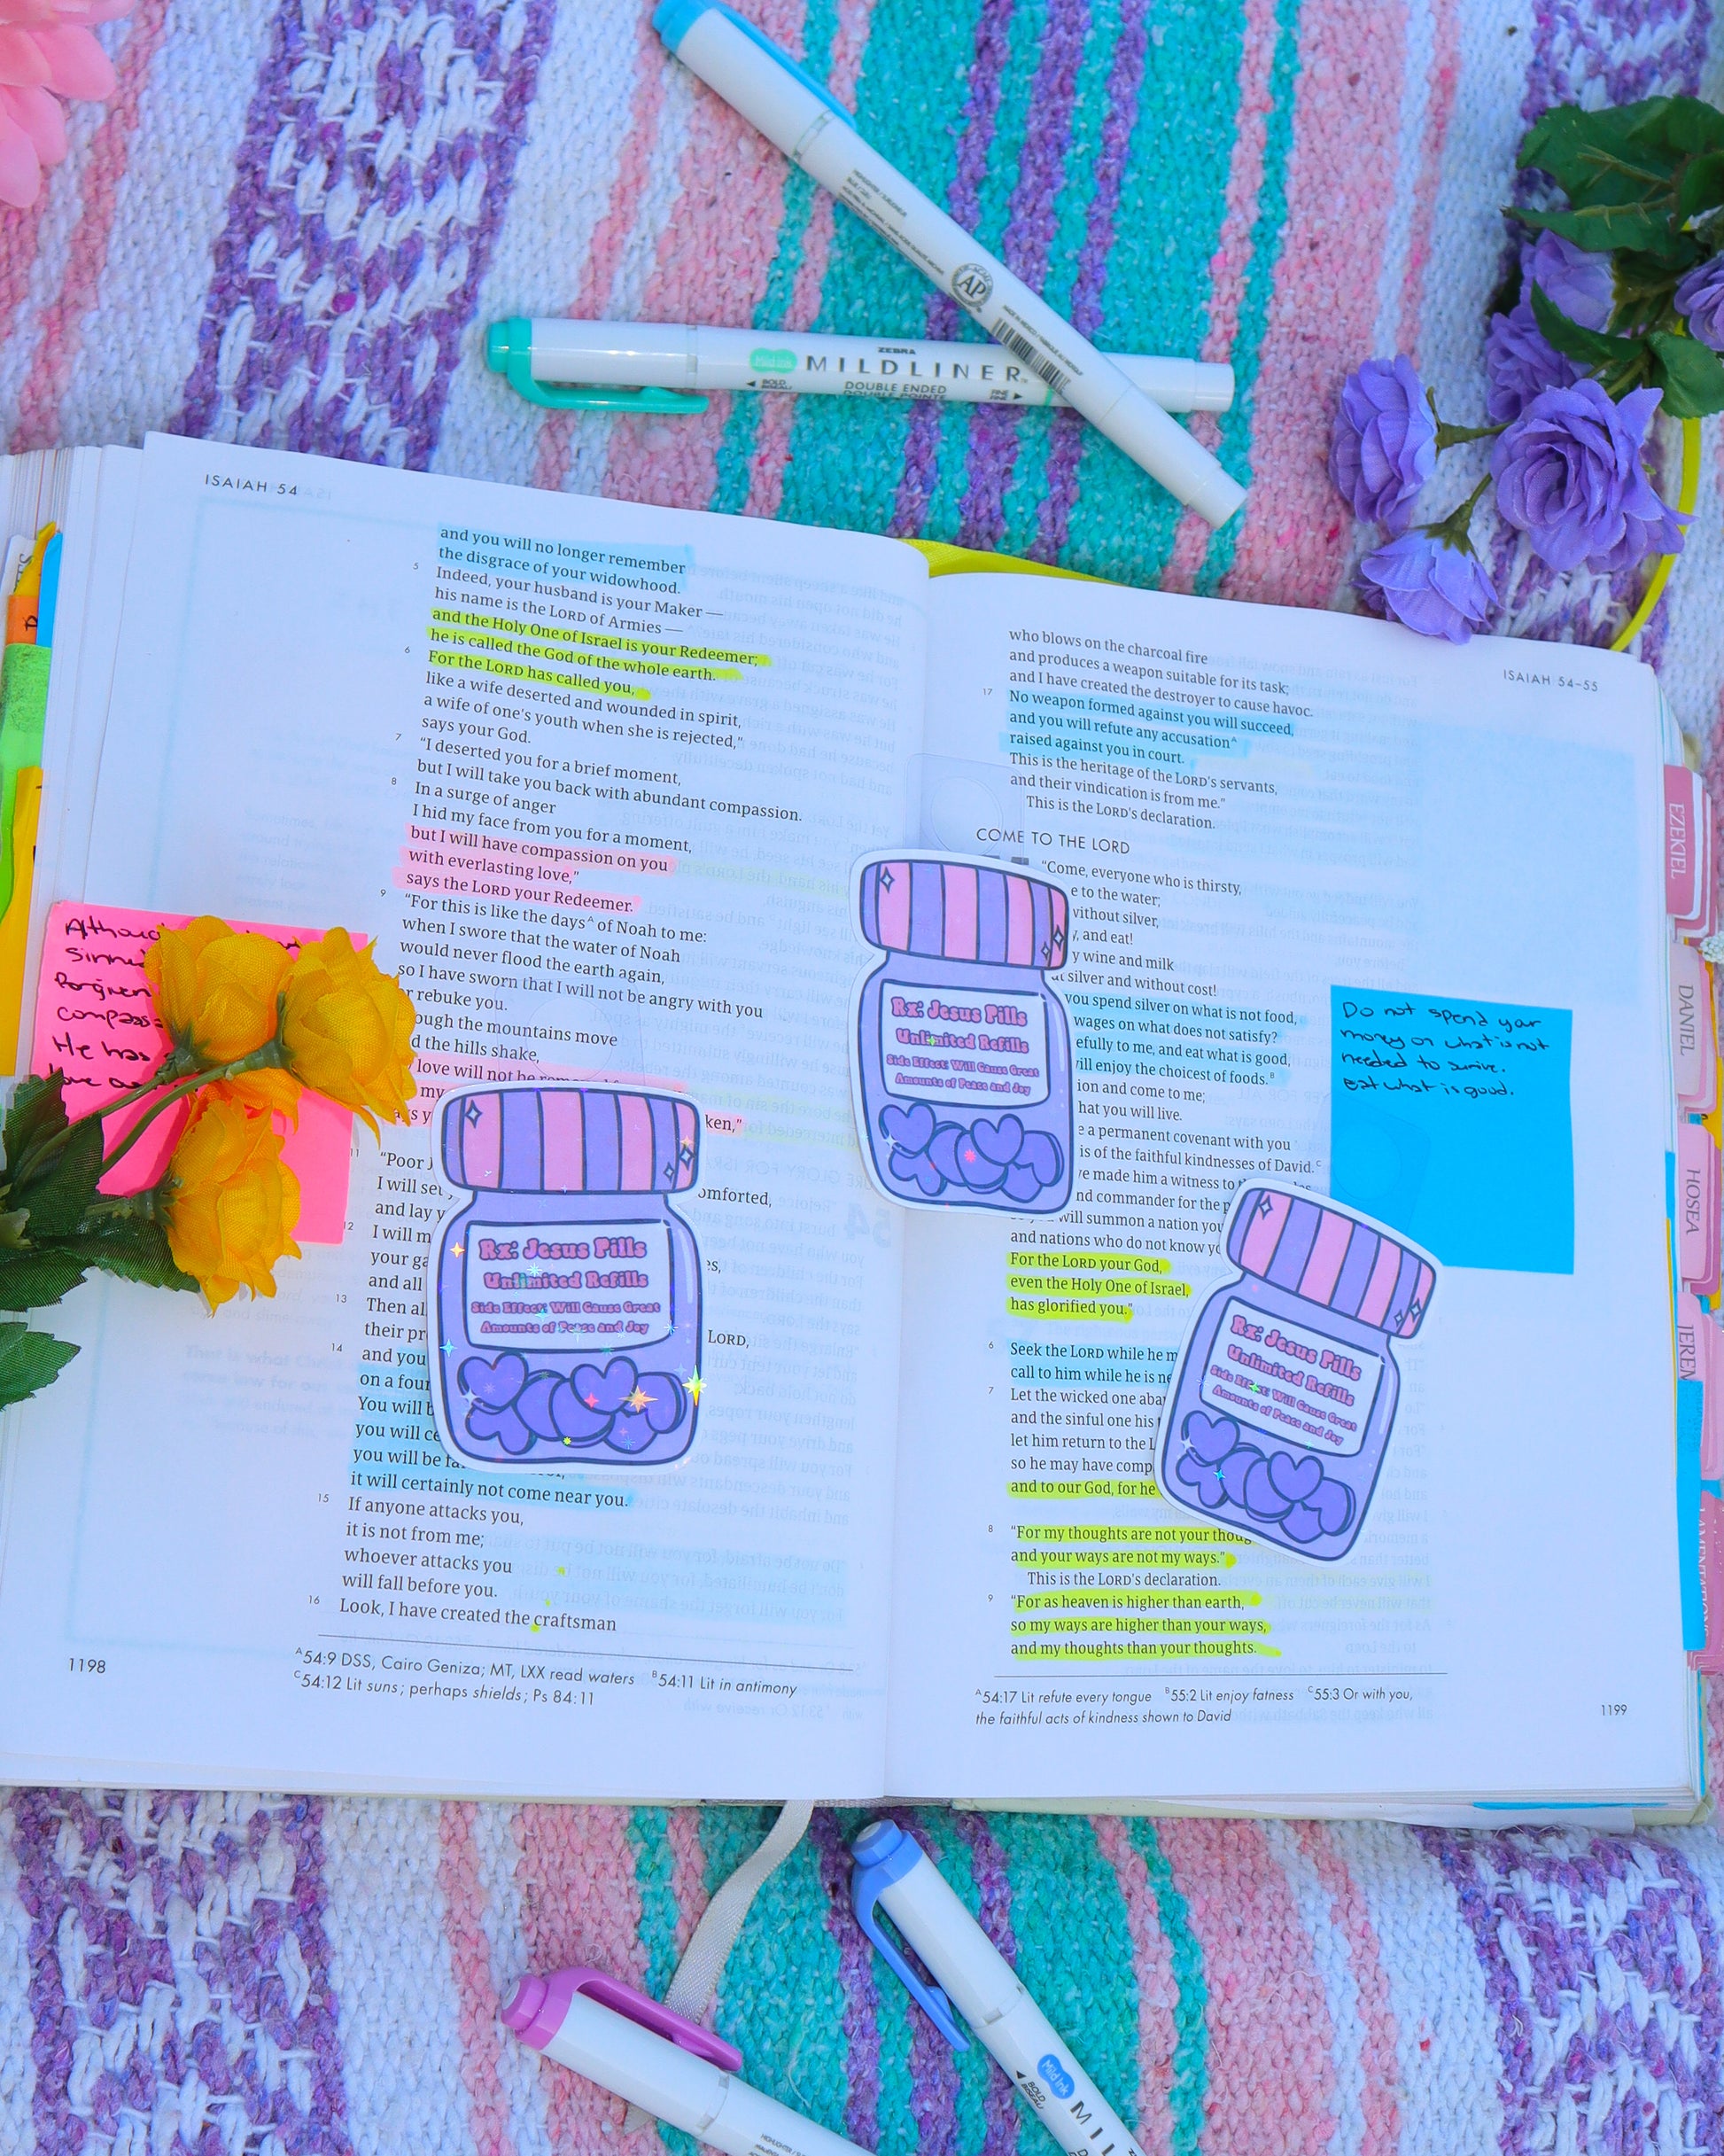 AP
ZEBRA
Mild ink MILDLINER
BOLD DOUBLE ENDED FINE
ISAIAH 54
and you will no longer remember
the disgrace of your widowhood.
5 Indeed, your husband is your Maker —
his name is the LORD of Armies —
and the Holy One of Israel is your Redeemer;
he is called the God of the whole earth.
6 For the LORD has called you,
like a wife deserted and wounded in spirit,
a wife of one's youth when she is rejected,"
says your God.
7 "I deserted you for a brief moment,
but I will take you back with abundant compassion.
8 In a surge of anger
I hid my face from you for a moment,
but I will have compassion on you
with everlasting love,"
says the LORD your Redeemer.
9 "For this is like the days A of Noah to me:
when I swore that the water of Noah
would never flood the earth again,
so I have sworn that I will not be angry with you
rebuke you.
the mountains move
the hills shake,
love will not be
my
ken,"
11 "Poor
omforted,
I will set
and lay
12 I will m
your ga
es,
and all
13 Then al
their pr
LORD,
14 and you
on a foun
You will b
you will ce
you will be
it will certainly not come near you.
15 If anyone attacks you,
it is not from me;
whoever attacks you
will fall before you.
16 Look, I have created the craftsman
A 54:9 DSS, Cairo Geniza; MT, LXX read waters B 54:11 Lit in antimony
C 54:12 Lit suns; perhaps shields; Ps 84:11
1198
He has
Rx: Jesus Pills
Unlimited Refills
Side Effect: Will Cause Great
Amounts of Peace and Joy
ISAIAH 54–55
who blows on the charcoal fire
and produces a weapon suitable for its task;
and I have created the destroyer to cause havoc.
17 No weapon formed against you will succeed,
and you will refute any accusation A
raised against you in court.
This is the heritage of the LORD's servants,
and their vindication is from me."
This is the LORD's declaration.
COME TO THE LORD
"Come, everyone who is thirsty,
e to the water;
without silver,
, and eat!
y wine and milk
silver and without cost!
you spend silver on what is not food,
wages on what does not satisfy?
efully to me, and eat what is good,
will enjoy the choicest of foods. B
ion and come to me;
hat you will live.
e a permanent covenant with you
is of the faithful kindnesses of David. C
ve made him a witness to
nd commander for the
will summon a nation you
and nations who do not know
For the LORD your God,
even the Holy One of Israel,
has glorified you."
6 Seek the LORD while he m
call to him while he is ne
7 Let the wicked one aba
and the sinful one his
let him return to the L
so he may have comp
and to our God, for he
8 "For my thoughts are not your thoug
and your ways are not my ways."
This is the LORD's declaration.
9 "For as heaven is higher than earth,
so my ways are higher than your ways,
and my thoughts than your thoughts.
A 54:17 Lit refute every tongue B 55:2 Lit enjoy fatness C 55:3 Or with you,
the faithful acts of kindness shown to David
1199
Rx: Jesus Pills
Unlimited Refills
Side Effect: Will Cause Great
Amounts of Peace and Joy
Rx: Jesus Pills
Unlimited Refills
Side Effect: Will Cause Great
Amounts of Peace and Joy
Do not spend your
money on what is not
needed to survive.
Eat what is good.
EZEKIEL
DANIEL
HOSEA
JEREM
LAMENTATIONS
Mild ink
BOLD